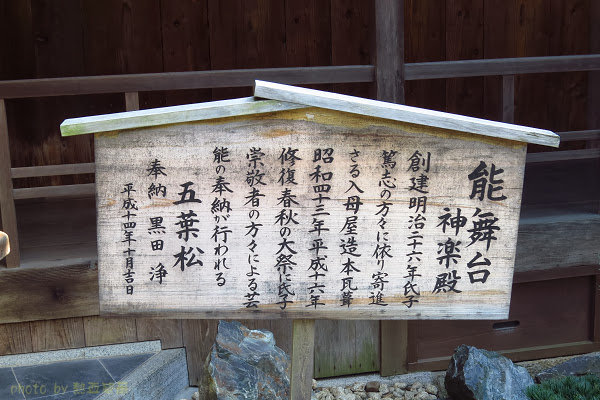 能舞台
神楽殿
創建明治二十六年氏子
篤志の方々に依り寄進
さる入母屋造本瓦葺
昭和四十三年平成十六年
修復春秋の大祭に氏子
崇敬者の方々による芸
能の奉納が行われる
五葉松
奉納 黒田 浄
平成十四年十月吉日
photo by